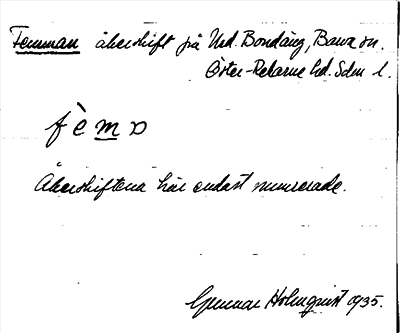 Femman åkerskift på Ned. Bondäng, Barva sn.
Öster-Rekarne hd. Sdm l.
fèmɷ
Åkerskiftena här endast numrerade.
Gunnar Holmquist 1935.